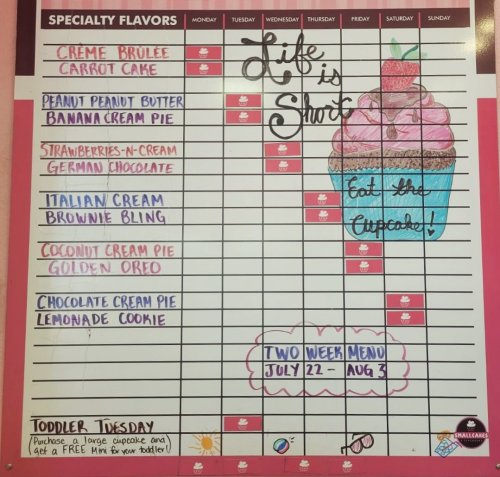 SPECIALTY FLAVORS MONDAY TUESDAY WEDNESDAY THURSDAY FRIDAY SATURDAY SUNDAY
Life
is
Short
CRÈME BRÛLÉE
CARROT CAKE
PEANUT PEANUT BUTTER
BANANA CREAM PIE
STRAWBERRIES-N-CREAM
GERMAN CHOCOLATE
ITALIAN CREAM
BROWNIE BLING
Eat the
Cupcake!
COCONUT CREAM PIE
GOLDEN OREO
CHOCOLATE CREAM PIE
LEMONADE COOKIE
TWO WEEK MENU
JULY 22 - AUG 3
TODDLER TUESDAY
(Purchase a large cupcake and
get a FREE Mini for your toddler!)
SMALLCAKES